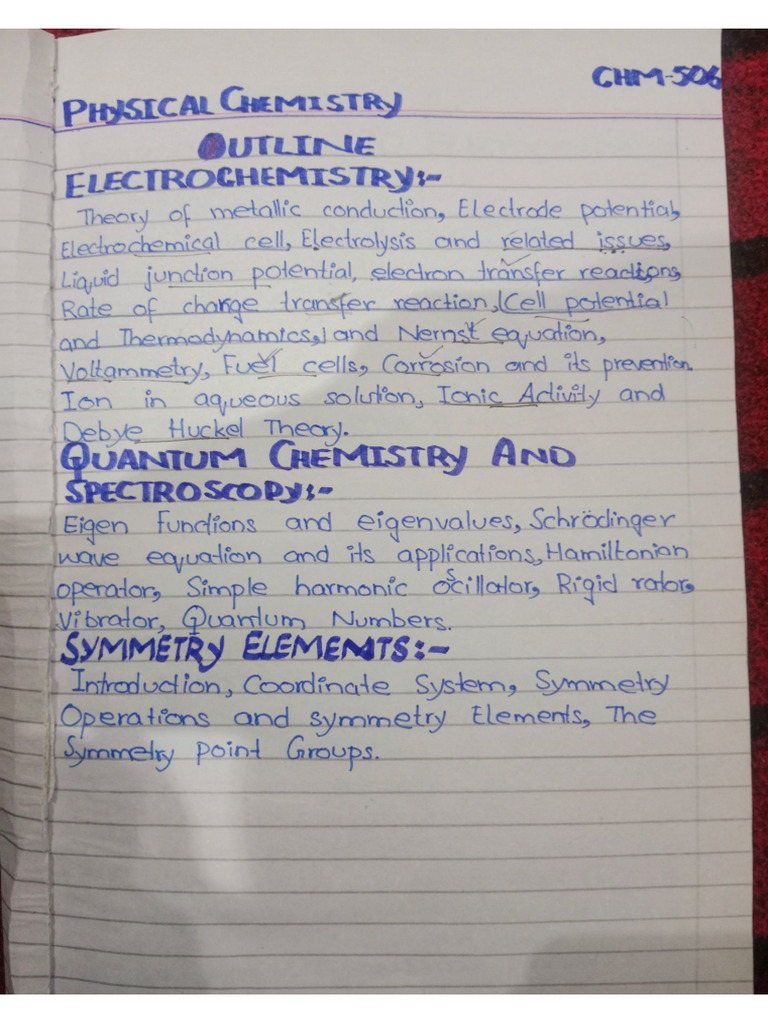 CHM-506
PHYSICAL CHEMISTRY
OUTLINE
ELECTROCHEMISTRY:-
Theory of metallic conduction, Electrode potential,
Electrochemical cell, Electrolysis and related issues,
Liquid junction potential, electron transfer reactions,
Rate of charge transfer reaction, (Cell potential
and Thermodynamics,) and Nernst equation,
Voltammetry, Fuel cells, Corrosion and its prevention.
Ion in aqueous solution, Ionic Activity and
Debye Huckel Theory.
QUANTUM CHEMISTRY AND
SPECTROSCOPY:-
Eigen functions and eigenvalues, Schrödinger
wave equation and its applications, Hamiltonian
operator, Simple harmonic oscillator, Rigid rator,
Vibrator, Quantum Numbers.
SYMMETRY ELEMENTS:-
Introduction, Coordinate System, Symmetry
Operations and symmetry Elements, The
Symmetry point Groups.